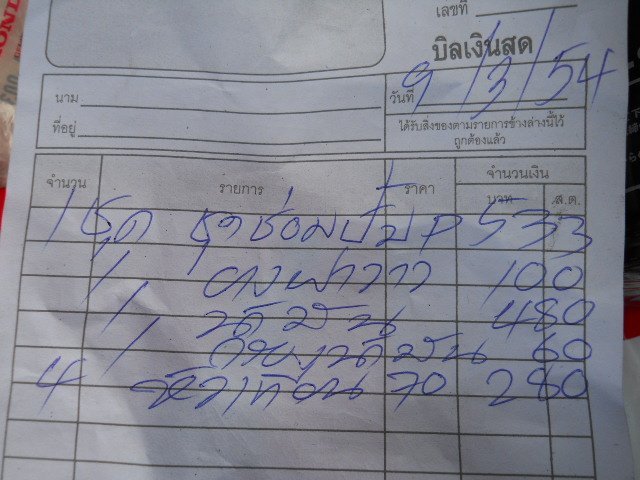 HONDA
เลขที่
บิลเงินสด
นาม วันที่ 9/3/54
ที่อยู่ ได้รับสิ่งของตามรายการข้างล่างนี้ไว้
ถูกต้องแล้ว
จำนวน รายการ ราคา จำนวนเงิน
บาท ส.ต.
1 ชุด ชุดซ่อมปั๊ม 533
1 100
1 น้ำมัน 480
1 น้ำมัน 60
4 หัวเทียน 70 280